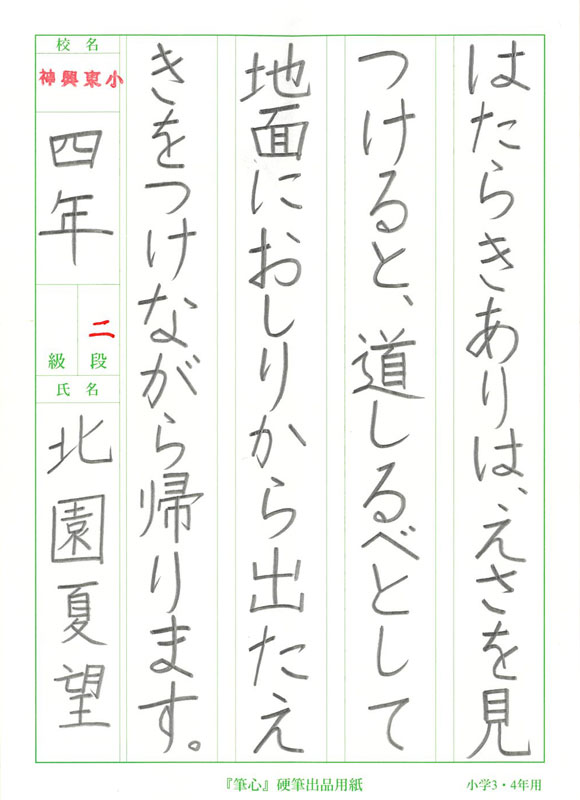 はたらきありは、えさを見
つけると、道しるべとして
地面におしりから出たえ
きをつけながら帰ります。
校名
神興東小
四年
二段
級
氏名
北園夏望
『筆心』硬筆出品用紙
小学3・4年用